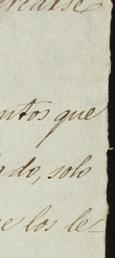 ntos que
ado, solo
e los le-